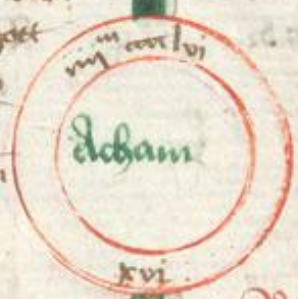 iiij m cccclvi
Acham
xvi